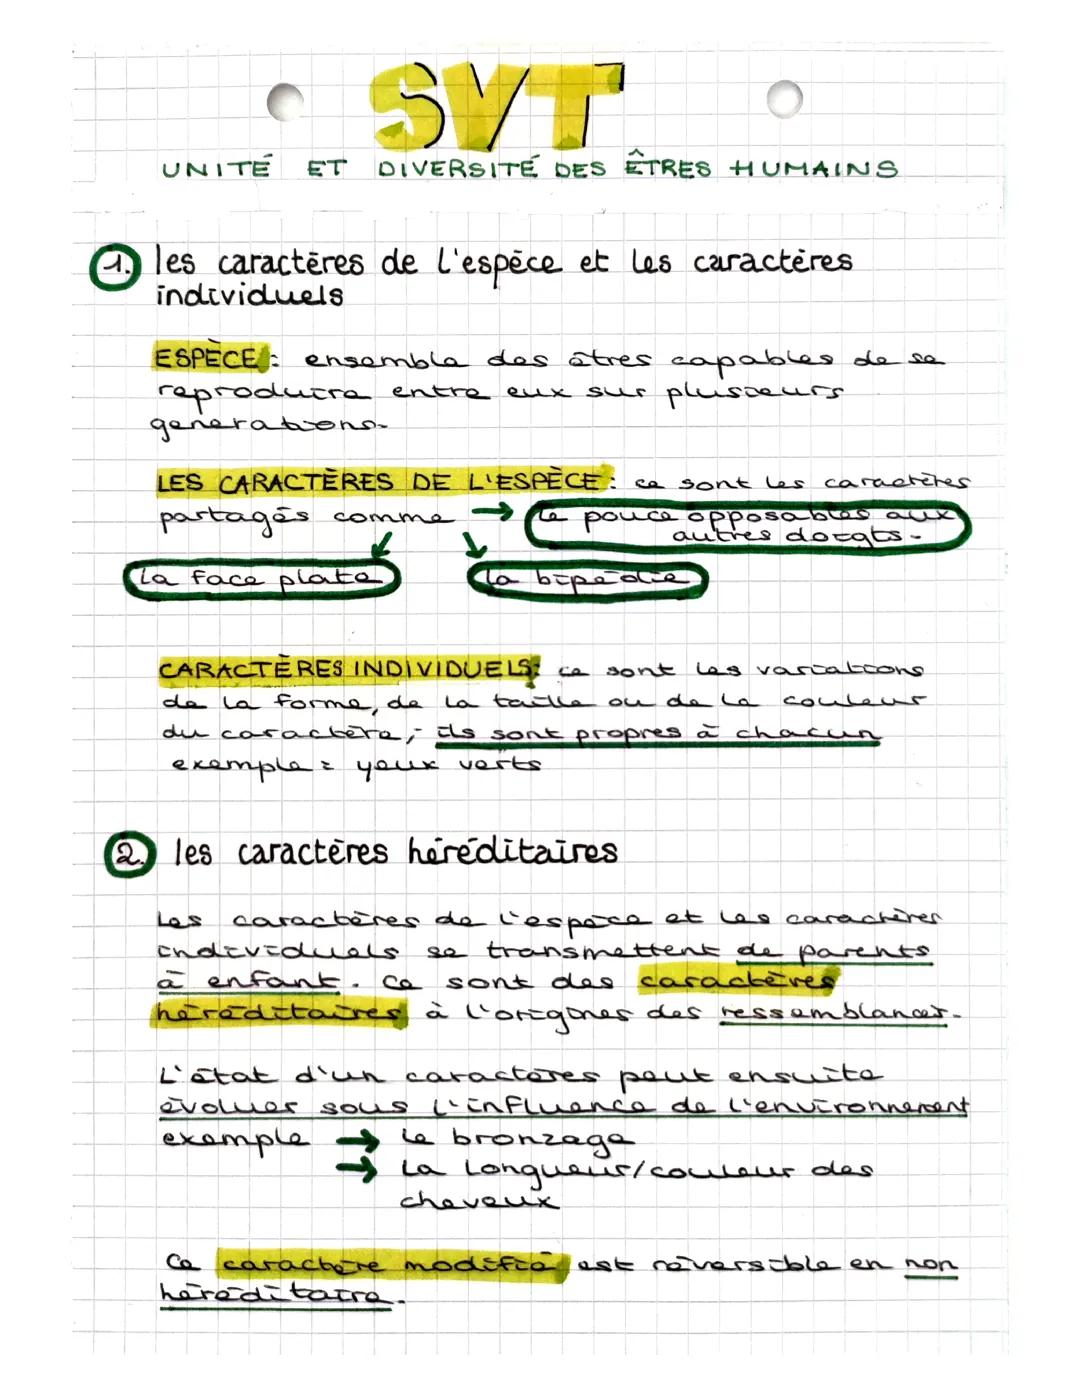 SVT
UNITÉ ET DIVERSITÉ DES ÊTRES HUMAINS
1. les caractères de l'espèce et les caractères
individuels
ESPÈCE : ensemble des êtres capables de se
reproduire entre eux sur plusieurs
generations.
LES CARACTÈRES DE L'ESPÈCE : ce sont les caractères
partagés comme → le pouce opposables aux
autres doigts.
la face plate la bipédie
CARACTÈRES INDIVIDUELS: ce sont les variations
de la forme, de la taille ou de la couleur
du caractère, ils sont propres à chacun
exemple : yeux verts
2. les caractères héréditaires
Les caractères de l'espèce et les caractères
individuels se transmettent de parents
à enfant. Ce sont des caractères
héréditaires à l'origines des ressemblances.
L'état d'un caractères peut ensuite
évoluer sous l'influence de l'environnement
exemple → le bronzage
→ La longueur/couleur des
cheveux
Ce caractère modifié est réversible en non
héréditaire.